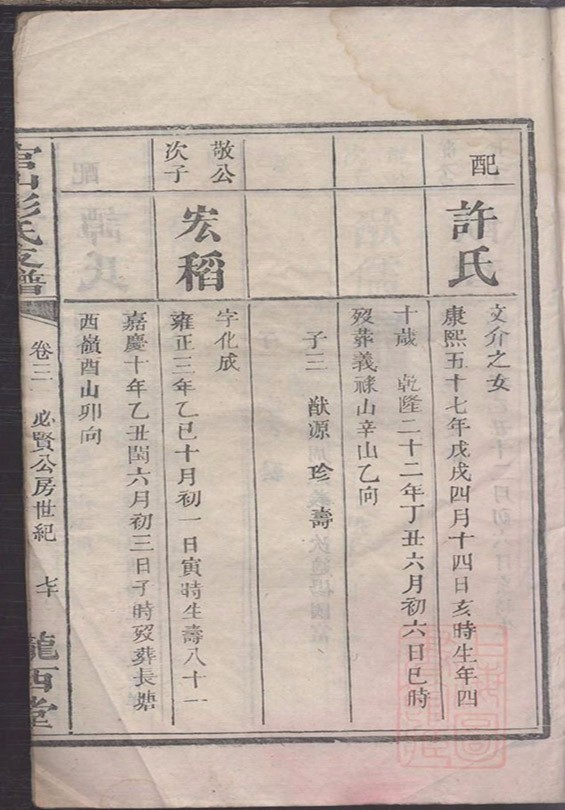 配
許氏
文介之女
康熙五十七年戊戌四月十四日亥時生年四
十歲 乾隆二十二年丁丑六月初六日巳時
歿葬義祿山辛山乙向
子三 猷源 珍 壽
敬公
次子
宏稻
字化成
雍正三年乙巳十月初一日寅時生壽八十一
嘉慶十年乙丑閏六月初三日子時歿葬長塘
西嶺酉山卯向
官山彭氏支譜
卷三 必賢公房世紀 七十
隴西堂